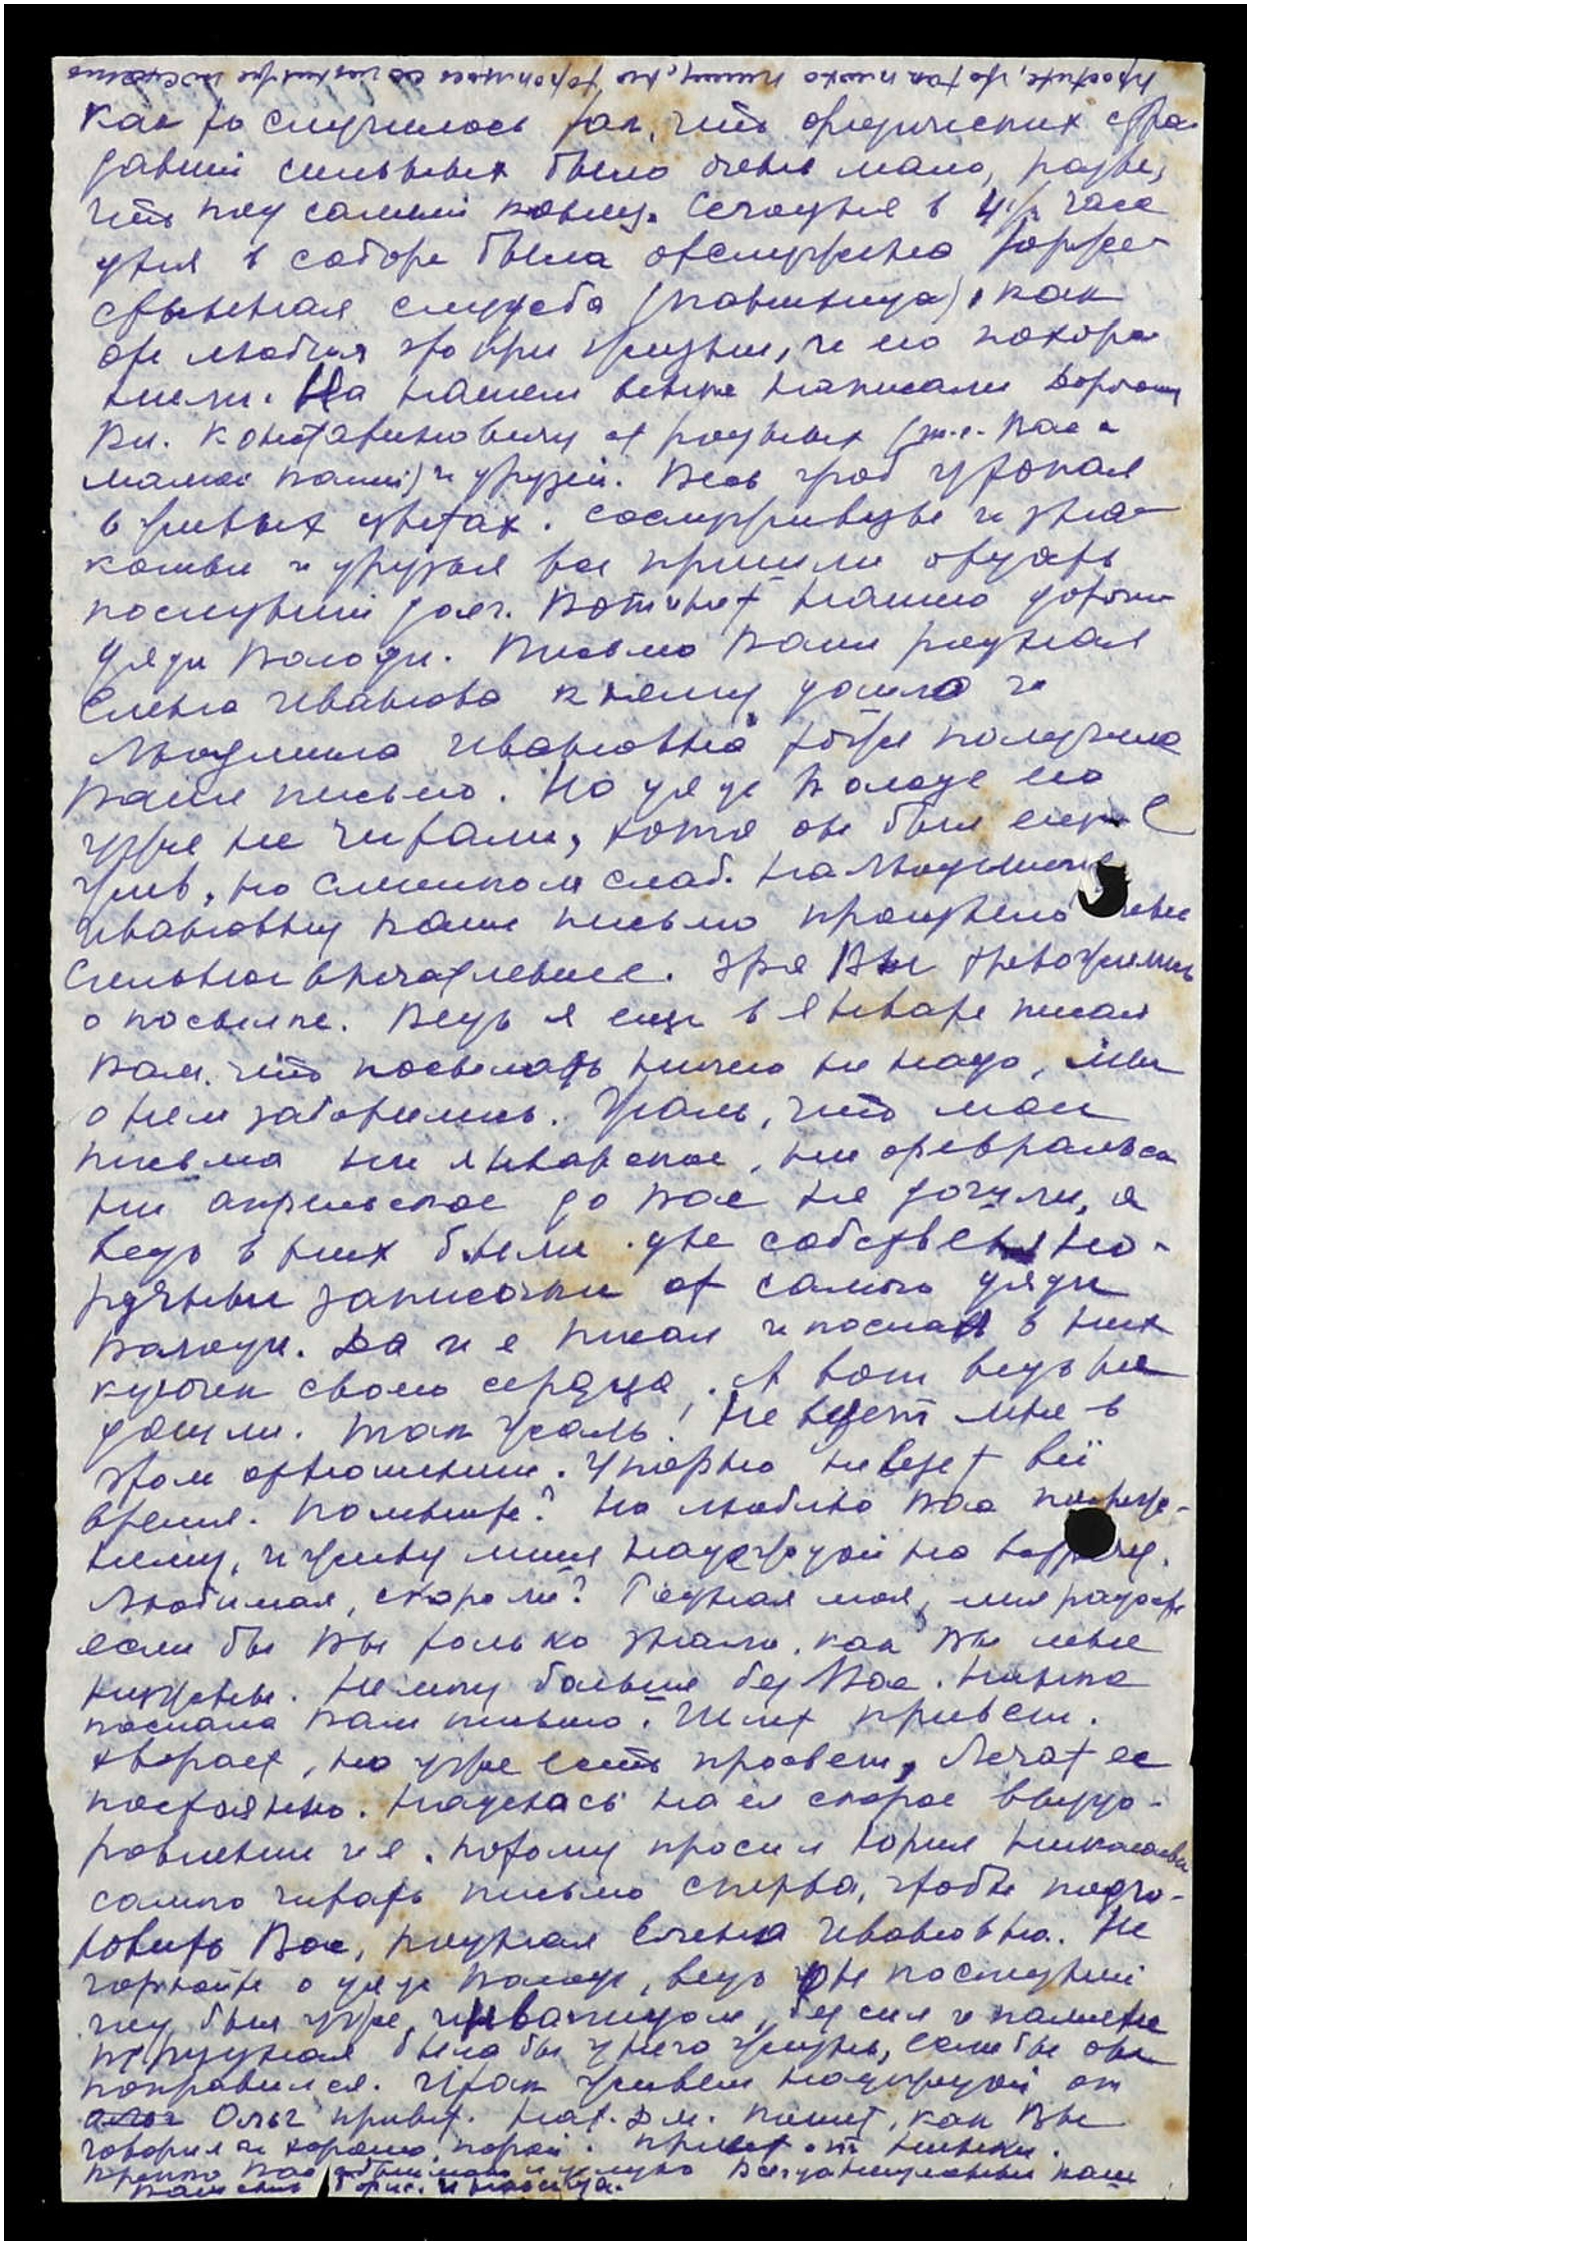 простите, что так плохо пишу, но тороплюсь
Как то случилось так, что физических стра-
даний сильных было очень мало, разве,
что под самый конец. Сегодня в 4 1/2 часа
дня в соборе была отслужена торже-
ственная служба (панихида), как
он любил это при жизни, и его похоро-
нили. На нашем венке написали Дорогому
Вл. Константиновичу от родных (т.е. Вас и
мамы Вашей) и друзей. Весь гроб утопал
в живых цветах. Сослуживцы и зна-
комые и друзья все пришли отдать
последний долг. Вот и нет нашего дорогого
дяди Володи. Письмо Ваше родная
Елена Ивановна к нему дошло и
Людмила Ивановна тоже получила
Ваше письмо. Но дяде Володе его
уже не читали, хотя он был еще
жив, но слишком слаб. На Людмилу
Ивановну Ваше письмо произвело очень
сильное впечатление. Зря Вы тревожились
о посылке. Ведь я еще в январе писал
Вам, что посылать ничего не надо, мы
о нем заботились. Жаль, что мои
письма ни январское, ни февральское
ни апрельское до Вас не дошли, а
ведь в них были две собственно-
ручные записочки от самого дяди
Володи. Да и я писал и послал в них
кусочек своего сердца. А вот ведь не
дошли. Так жаль! Не везет мне в
этом отношении. Упорно не везет всё
время. Помните? Но люблю Вас по преж-
нему, и живу лишь надеждой на встречу.
Любимая, скоро ли? Родная моя, моя радость
если бы Вы только знали, как Вы мне
нужны. Не могу больше без Вас. Нинка
послала Вам письмо. Шлет привет.
Хворает, но уже есть просвет, лечат ее
постоянно. Надеюсь на её скорое выздо-
ровление и я. Потому просил Юрия Николаевича
самого читать письмо сперва, чтобы подго-
товить Вас, родная Елена Ивановна. Не
горюйте о дяде Володе, ведь он последний
год был уже инвалидом, без сил и памяти
и трудная была бы у него жизнь, если бы он
поправился. Итак живем надеждой от
Ольги привет. Нат. Дм. пишет, как Вы
говорили хорошо порой. Привет от Нинки.
Крепко Вас обнимаю и целую Всегда неизменный Ваш